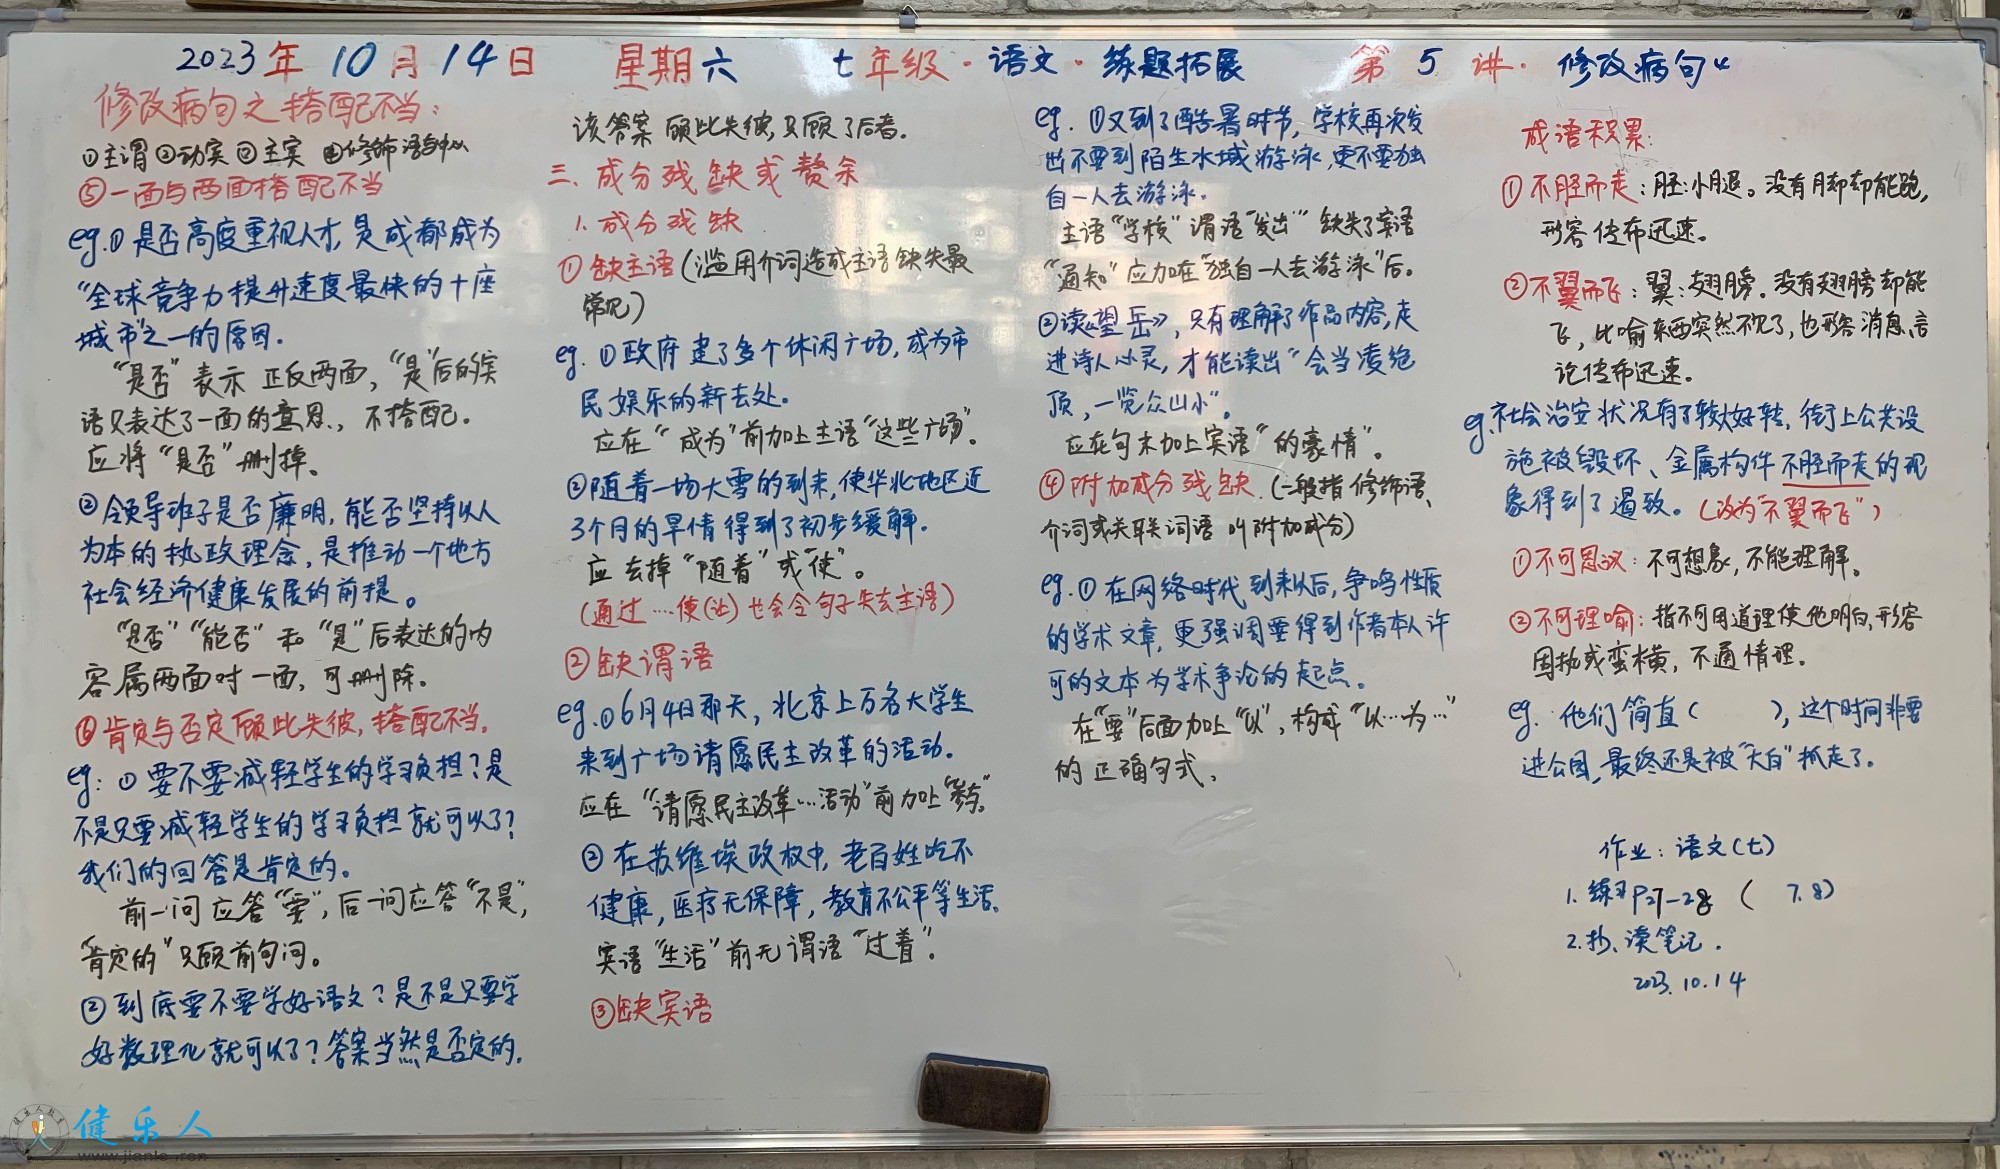 2023年10月14日 星期六 七年级·语文·练题拓展 第5讲·修改病句4
修改病句之搭配不当:
①主谓②动宾③主宾④修饰语与中心
⑤一面与两面搭配不当
eg.①是否高度重视人才,是成都成为
“全球竞争力提升速度最快的十座
城市”之一的原因.
“是否”表示正反两面,“是”后的宾
语只表达了一面的意思,不搭配.
应将“是否”删掉。
②领导班子是否廉明,能否坚持以人
为本的执政理念,是推动一个地方
社会经济健康发展的前提。
“是否”“能否”和“是”后表达的内
容属两面对一面,可删除。
⑥肯定与否定顾此失彼,搭配不当.
eg:①要不要减轻学生的学习负担?是
不是只要减轻学生的学习负担就可以了?
我们的回答是肯定的。
前一问应答“要”,后一问应答“不是”,
“肯定的”只顾前句问。
②到底要不要学好语文?是不是只要学
好数理化就可以了?答案当然是否定的.
该答案顾此失彼,只顾了后者.
三、成分残缺或赘余
1.成分残缺
①缺主语(滥用介词造成主语缺失最
常见)
eg.①政府建了多个休闲广场,成为市
民娱乐的新去处.
应在“成为”前加上主语“这些广场”.
②随着一场大雪的到来,使华北地区近
3个月的旱情得到了初步缓解.
应去掉“随着”或“使”。
(通过…使(让)也会令句子失去主语)
②缺谓语
eg.①6月4日那天,北京上万名大学生
来到广场请愿民主改革的活动.
应在“请愿民主改革…活动”前加上“参与”.
②在苏维埃政权中,老百姓吃不
健康,医疗无保障,教育不公平等生活.
宾语“生活”前无谓语“过着”.
③缺宾语
eg.①又到了酷暑时节,学校再次发
出不要到陌生水域游泳,更不要独
自一人去游泳.
主语“学校”谓语“发出”缺失了宾语
“通知”应加在“独自一人去游泳”后。
②读《望岳》,只有理解了作品内容,走
进诗人心灵,才能读出“会当凌绝
顶,一览众山小”。
应在句末加上宾语“的豪情”.
④附加成分残缺.(一般指修饰语、
介词或关联词语叫附加成分)
eg.①在网络时代到来以后,争鸣性质
的学术文章,更强调要得到作者本人许
可的文本为学术争论的起点。
在“要”后面加上“以”,构成“以…为…”
的正确句式.
成语积累:
①不胫而走:胫:小腿。没有脚却能跑,
形容传布迅速。
②不翼而飞:翼:翅膀.没有翅膀却能
飞,比喻东西突然不见了,也形容消息、言
论传布迅速。
eg.社会治安状况有了较大好转,街上公共设
施被毁坏、金属构件不胫而走的现
象得到了遏致。(改为“不翼而飞”)
①不可思议:不可想象,不能理解。
②不可理喻:指不可用道理使他明白,形容
固执或蛮横,不通情理.
eg.他们简直( ),这个时间非要
进公园,最终还是被“大白”抓走了.
作业:语文(七)
1.练习P27-28(7.8)
2.抄、读笔记.
2023.10.14
健乐人
www.jianle.ren